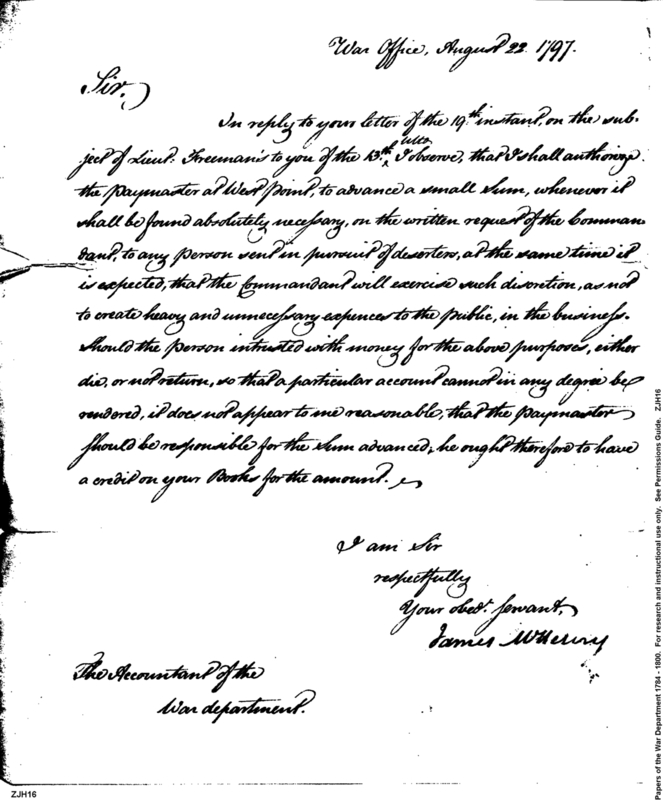 War Office, August 22. 1797.
Sir,
In reply to your letter of the 19th instant, on the sub-
ject of Lieut. Freeman's to you of the 13th. Ulto. I observe, that I shall authorize
the Paymaster at West Point, to advance a small Sum, whenever it
shall be found absolutely necessary, on the written request of the Comman
dant, to any Person sent in pursuit of deserters, at the same time it
is expected, that the Commandant will exercise such discretion, as not
to create heavy and unnecessary expences to the public, in the business.
Should the Person intrusted with money for the above purposes, either
die, or not return, so that a particular account cannot in any degree be
rendered, it does not appear to me reasonable, that the Paymaster
should be responsible for the Sum advanced; he ought therefore to have
a credit on your Books for the amount.
I am Sir
respectfully
Your obedt. servant,
James McHenry
The Accountant of the
War department.
ZJH16
Papers of the War Department 1784 - 1800. For research and instructional use only. See Permissions Guide. ZJH16